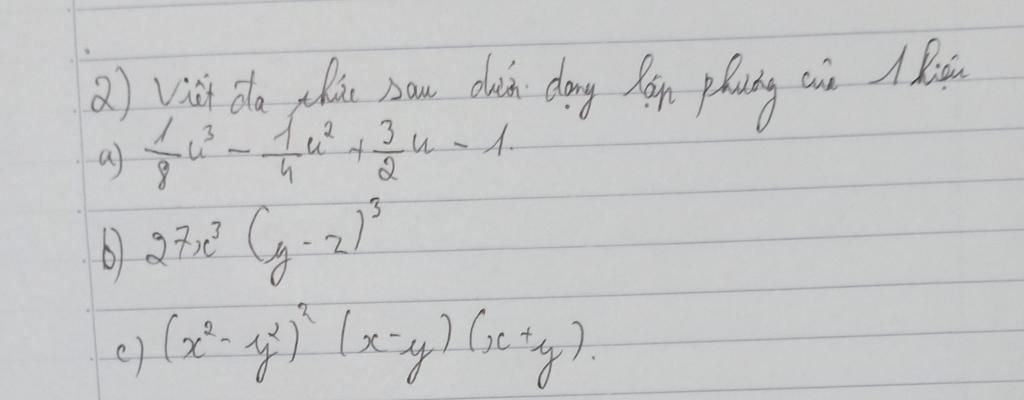 2) Viết đa thức sau dưới dạng lập phương của 1 hiệu
a) 1/8 u³ - 1/4 u² + 3/2 u - 1.
b) 27x³ (y - z)³
c) (x² - y²)² (x - y) (x + y).